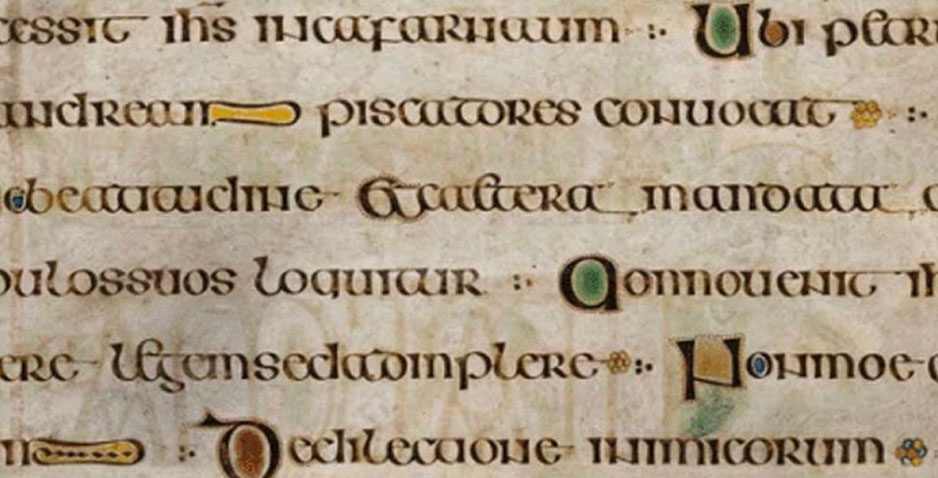 cessit ihs incafarnaum :· Ubi petr
andream piscatores conuocat :·
debeatitudine Et caetera mandata
pulossuos loquitur :· Qonnouenit ih
ere legemsedadimplere :· Nonmoe c
m :· Dedilectione inimicorum